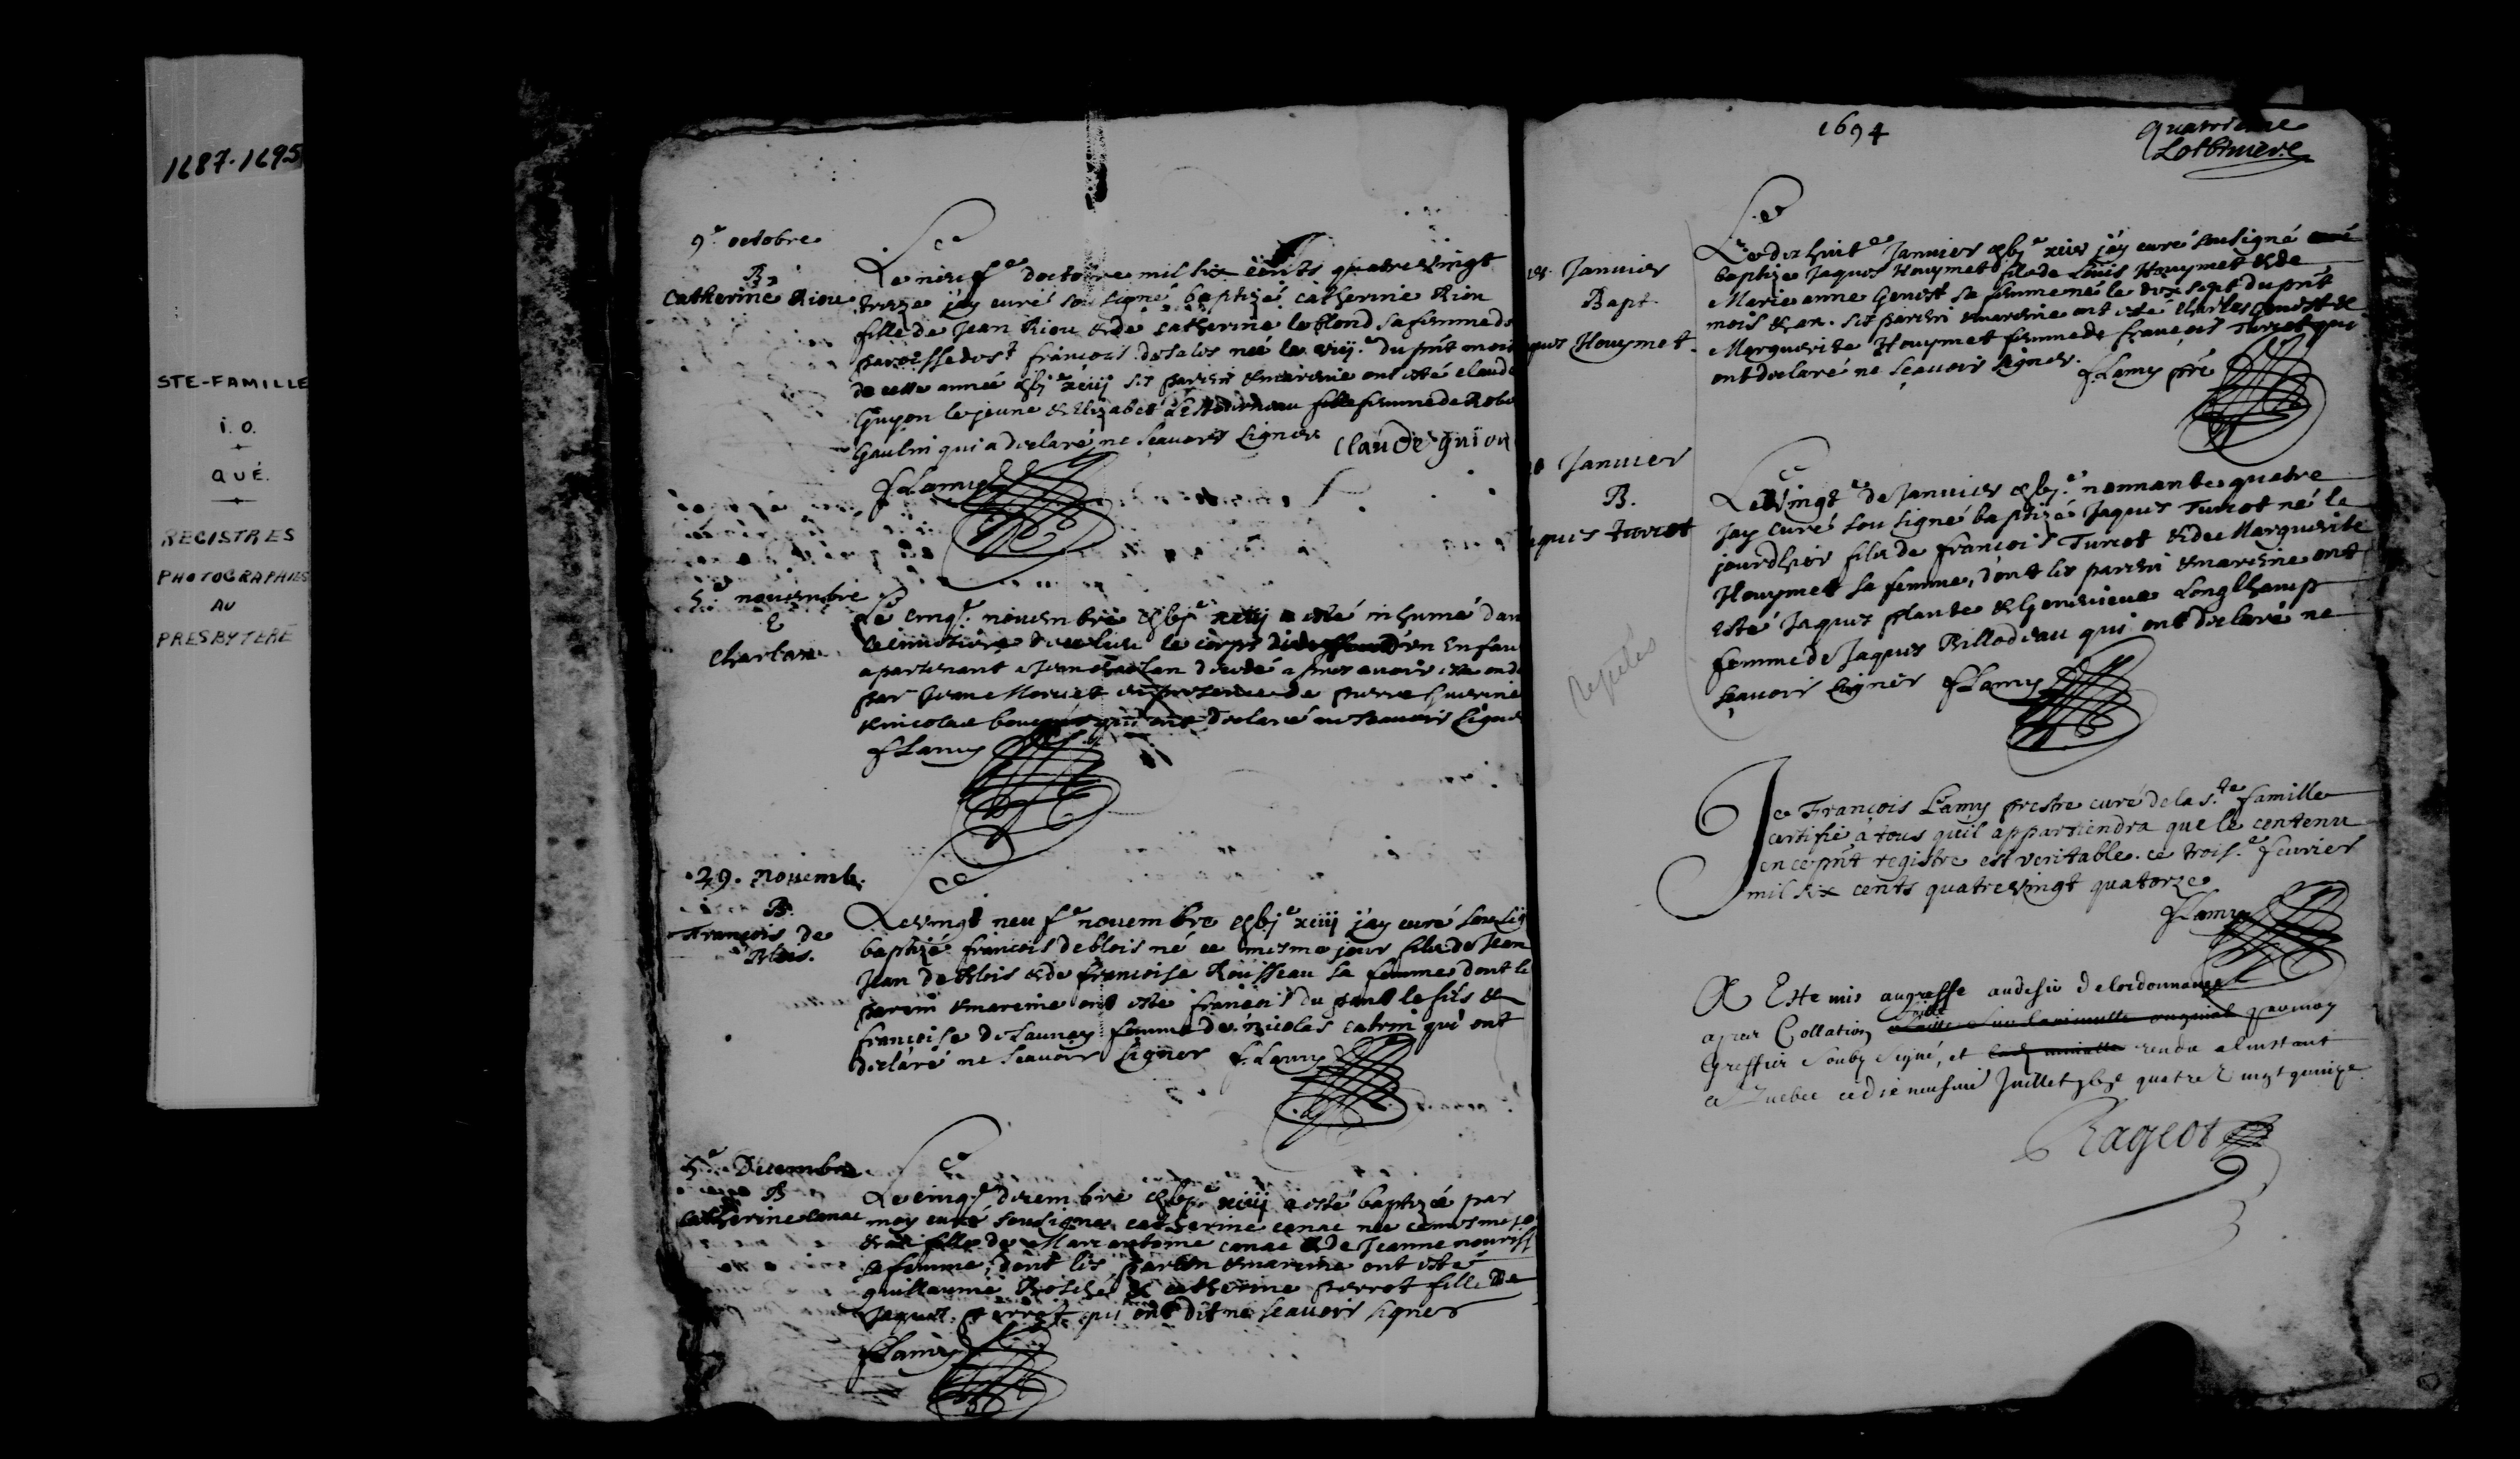 1687-1695
STE-FAMILLE
I.O.
QUÉ.
REGISTRES
PHOTOGRAPHIÉS
AU
PRESBYTERE
9.e octobre
B
Catherine Riou
Le neuf.e doctobre mil six cents quatre vingt
treize j'ay curé sousigné baptizé catherine Riou
fille de Jean Riou & de catherine leblond sa femme d
paroisse de st françois de sales née le viij.e du pnt mois
de cette année ses parein & mareine ont esté claude
Guyon le jeune & Elizabet femme de Robe
Gaulin qui a declaré ne sçauoir signer claude guion
f Lamy
5.e nouembre
E
charlan
Le cinq.e nouembre a esté inhumé dan
le corps d'un Enfan
apartenant a Jean decedé apres auoir esté ond
par de pierre
& nicolas declaré ne sçauoir signer
f Lamy
29. nouemb.
B.
François de
Blois.
Le vingt neuf.e nouembre xciij j'ay curé sousig
baptizé francois deblois né ce mesme jour fils de Jean
Jean de blois & de francoise Rousseau sa femme dont le
parein & mareine ont esté françois du pont le fils &
françoise de Launay femme de nicolas qui ont
declaré ne sçauoir signer f. Lamy
5.e Decembre
B
Catherine canac
Le cinq.e decembre a esté baptizée par
moy curé sousigné catherine canac née ce mesme jo
fille de Marc antoine canac & de Jeanne nouriss
sa femme, dont les parein & mareine ont esté
guillaume & catherine perrot fille de
Jaques perrot qui ont dit ne sçauoir signer
f Lamy
1694
quatrieme
Lotbiniere
Januier
Bapt
ques Houymet
Le
Le dix huit.e Januier xciv j'ay curé sousigné
baptizé Jaques Houymet fils de Louis Houymet & de
Marie anne Genest sa femme né le dix sept du pnt
mois & an. ses parein & mareine ont esté charles Genest &
Marguerite Houymet femme de françois Turcot qui
ont declaré ne sçauoir signer. f. Lamy pre
Januier
B.
ques turcot
Le Vingt.e de Januier nonnante quatre
j'ay curé sousigné baptizé Jaques Turcot né le
jourd'hier fils de francois Turcot & de Marguerite
Houymet sa femme, dont les parein & mareine ont
esté Jaques plante & Geneuieue Longchamp
femme de Jaques Billodeau qui ont declaré ne
sçauoir signer f Lamy
Je François Lamy prestre curé de la s.te famille
certifie à tous qu'il appartiendra que le contenu
en ce pnt registre est veritable. ce trois.e feurier
mil six cents quatre vingt quatorze
f Lamy
A Este mis au greffe au desir de lordonnance
apres Collation par moy
Greffier soubz signé, et rendu a linstant
a Quebec ce dix neufuie Juillet quatre vingt quinze
Rageot